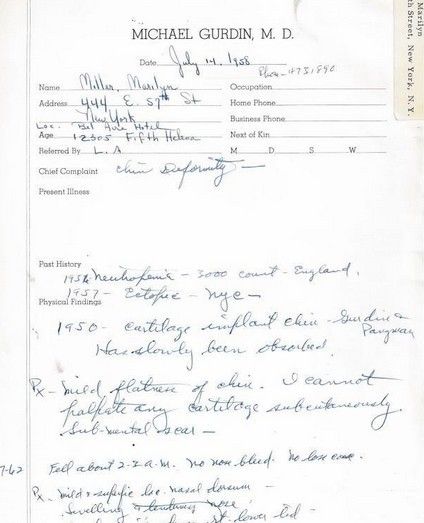 Marilyn
th Street, New York, N. Y.
MICHAEL GURDIN, M. D.
Date July 14, 1958
Phone - 4731890
Name Miller, Marilyn Occupation
Address 444 E. 57th St Home Phone
New York Business Phone
Loc. Bel Aire Hotel
Age 12305 Fifth Helena Next of Kin
Referred By L. A. M D S W
Chief Complaint chin deformity -
Present Illness
Past History
1956 Neutropenia - 3000 count - England.
1957 - Ectopic - NYC -
Physical Findings
1950 - cartilage implant chin - Gurdin &
Pangman
Has slowly been absorbed.
Px - Mild flatness of chin. I cannot
palpate any cartilage subcutaneously.
Sub-mental scar -
7-62 Fell about 2-2 a.m. No nose bleed. No loss
Px - Mild loc. nasal dorsum -
Swelling & tenderness nose
lower lid -